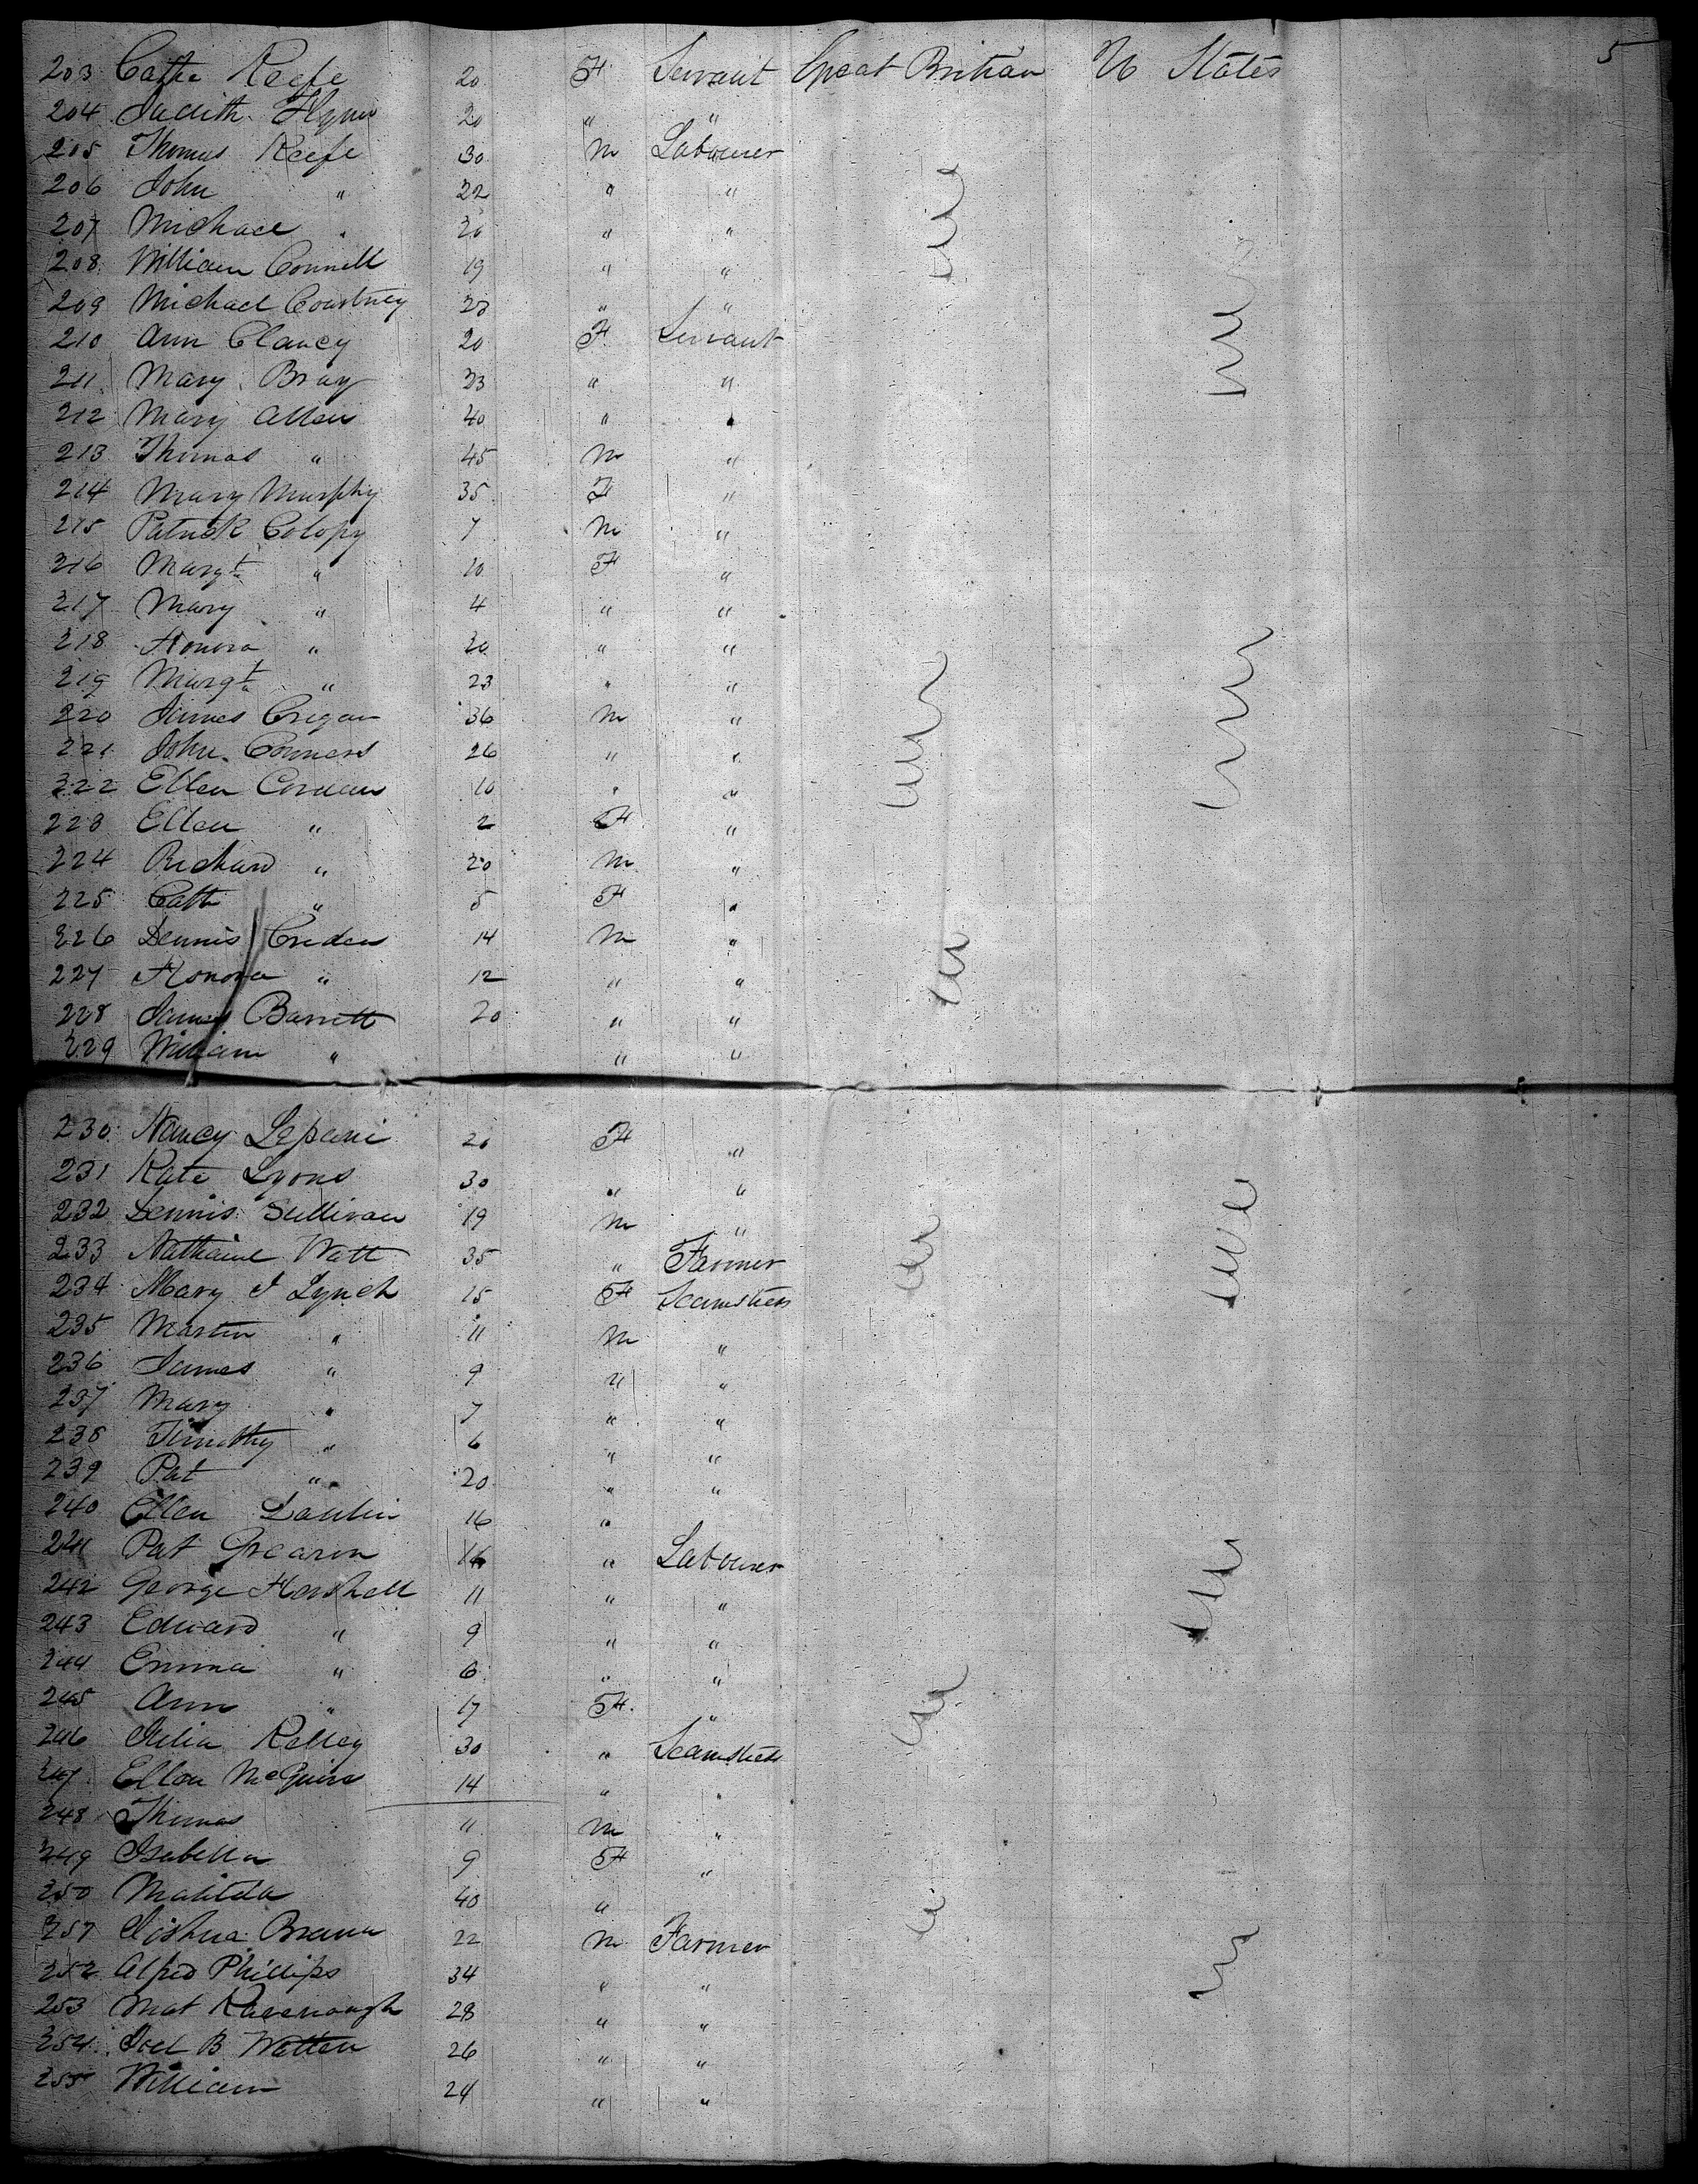 5
203 Cathe Keefe 20 F Servant Great Britian U States
204 Judith Flynn 20 " "
205 Thomas Keefe 30 M Labourer
206 John " 22 " "
207 Michael " 20 " "
208 William Connell 19 " "
209 Michael Courtney 23 " "
210 Ann Clancy 20 F Servant
211 Mary Bray 23 " "
212 Mary Allen 40 " "
213 Thomas " 45 M "
214 Mary Murphy 35 F "
215 Patrick Colopy 7 M "
216 Margt " 10 F "
217 Mary " 4 " "
218 Honora " 20 " "
219 Margt " 23 " "
220 James Cregan 36 M "
221 John Conners 26 " "
222 Ellen 10 " "
223 Ellen " 2 F "
224 Richard " 20 M "
225 Cath " 5 F "
226 Dennis Creden 14 M "
227 Honora " 12 " "
228 James Barrett 20 " "
229 William " " "
230 Nancy 20 F "
231 Kate Lyons 30 " "
232 Dennis Sullivan 19 M "
233 Nathaniel Watt 35 " Farmer
234 Mary J Lynch 15 F Seamstress
235 Martin " 11 M "
236 James " 9 " "
237 Mary " 7 " "
238 Timothy " 6 " "
239 Pat " 20 " "
240 Ellen 16 "
241 Pat 16 " Labourer
242 George Hershell 11 " "
243 Edward " 9 " "
244 Emma " 6 " "
245 Ann " 17 F "
246 Julia Kelley 30 " Seamstress
247 Ellen McGuire 14 " "
248 Thomas 11 M "
249 Isabella 9 F "
250 Matilda 40 "
251 Joshua Brown 22 M Farmer
252 Alfred Phillips 34 " "
253 Mat Kavanough 28 " "
254 Joel B Watten 26 " "
255 William 24 " "